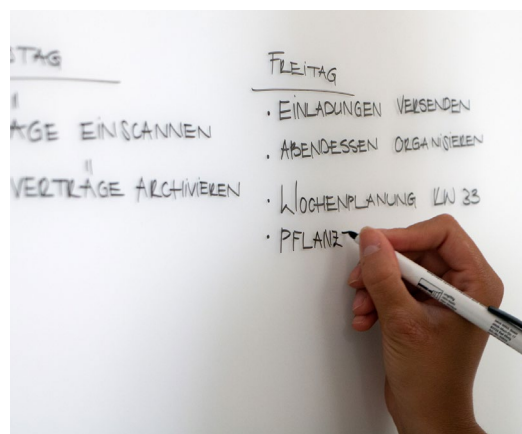 STAG
FREITAG
ÄGE EINSCANNEN
VERTRÄGE ARCHIVIEREN
· EINLADUNGEN VERSENDEN
· ABENDESSEN ORGANISIEREN
· WOCHENPLANUNG KW 33
· PFLANZ